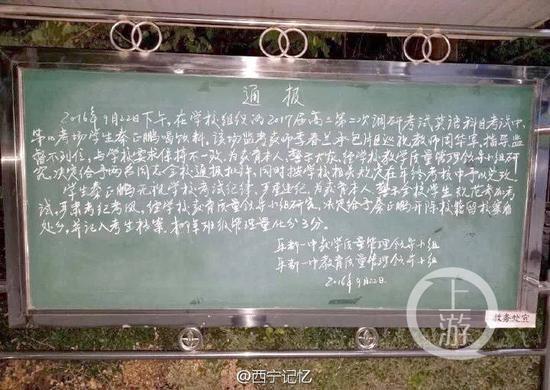 通报
2016年9月22日下午,在学校组织的2017届高三第二次调研考试英语科目考试中,
第 考场学生秦正鹏喝饮料。该场监考教师季春兰承包片区巡视教师周华军,指导监
督不到位,与学校要求保持不一致,为教育本人,警示大家,经学校教学质量管理领导小组研
究,决定给予两名同志全校通报批评,同时按学校相关规定在年终考核中予以兑现。
学生秦正鹏无视学校考试纪律,严重违纪,为教育本人,警示全校学生规范参加考
试,严肃考纪考风,经学校教育质量领导小组研究,决定给予秦正鹏开除学籍留校察看
处分,并记入考生档案,扣 班级管理量化分3分。
阜新一中教学质量管理领导小组
阜新一中教育质量管理领导小组
2016年9月22日
教务处宣
上游
@西宁记忆